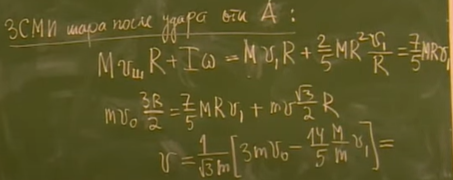 ЗСМИ шара после удара отн A:
Mv_ш R + Iω = Mv₁R + 2/5 MR² v₁/R = 7/5 MRv₁
mv₀ 3R/2 = 7/5 MRv₁ + mv √3/2 R
v = 1/(√3m) [3mv₀ - 14/5 M/m v₁] =